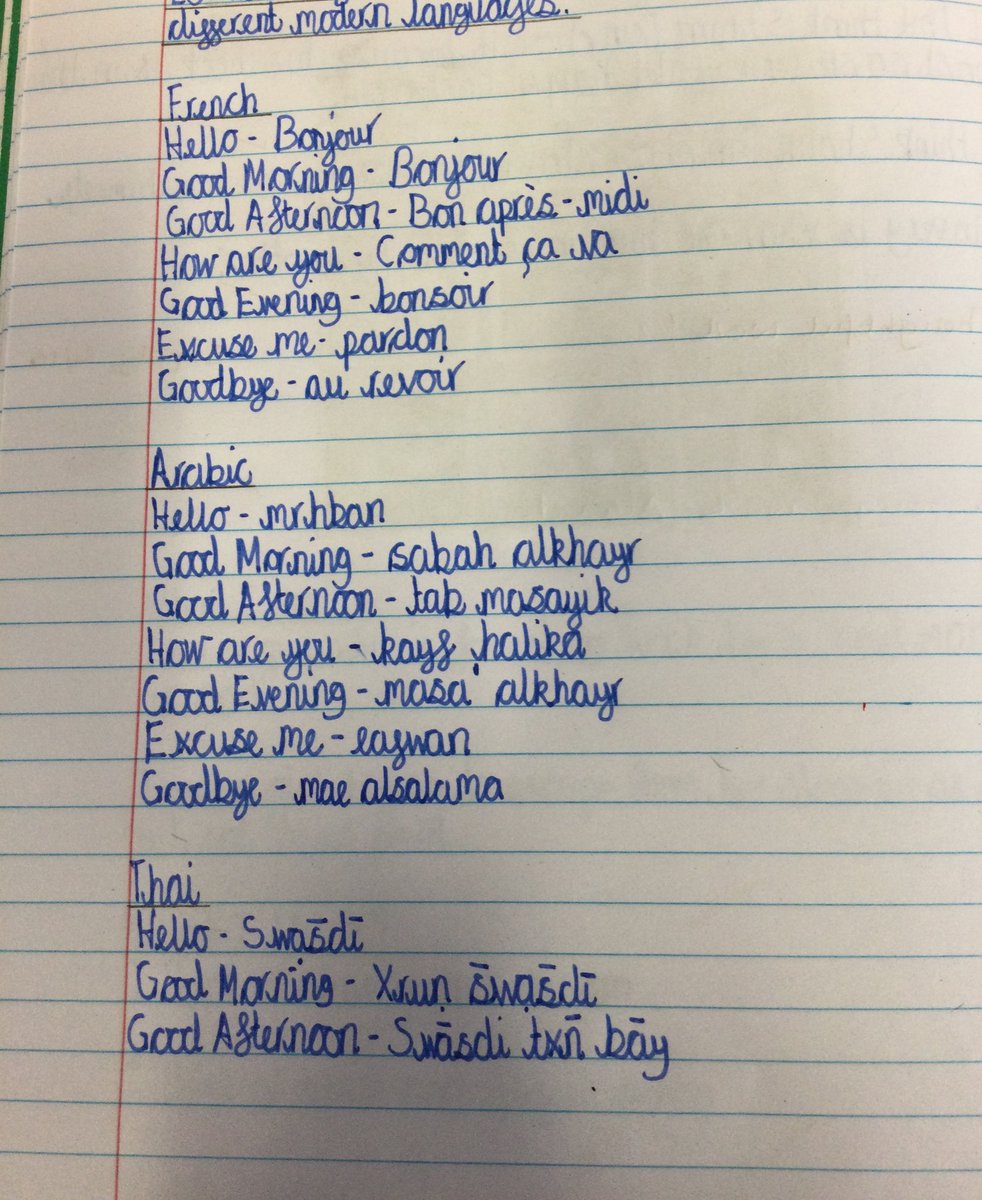 different modern languages.
French
Hello - Bonjour
Good Morning - Bonjour
Good Afternoon - Bon après-midi
How are you - Comment ça va
Good Evening - bonsoir
Excuse me - pardon
Goodbye - au revoir
Arabic
Hello - mrhban
Good Morning - sabah alkhayr
Good Afternoon - tab masayik
How are you - kayf halika
Good Evening - masa' alkhayr
Excuse me - eafwan
Goodbye - mae alsalama
Thai
Hello - Swas̄dī
Good Morning - Xruṇ s̄wạs̄dī
Good Afternoon - Swās̄di ṭxn̄ bāy